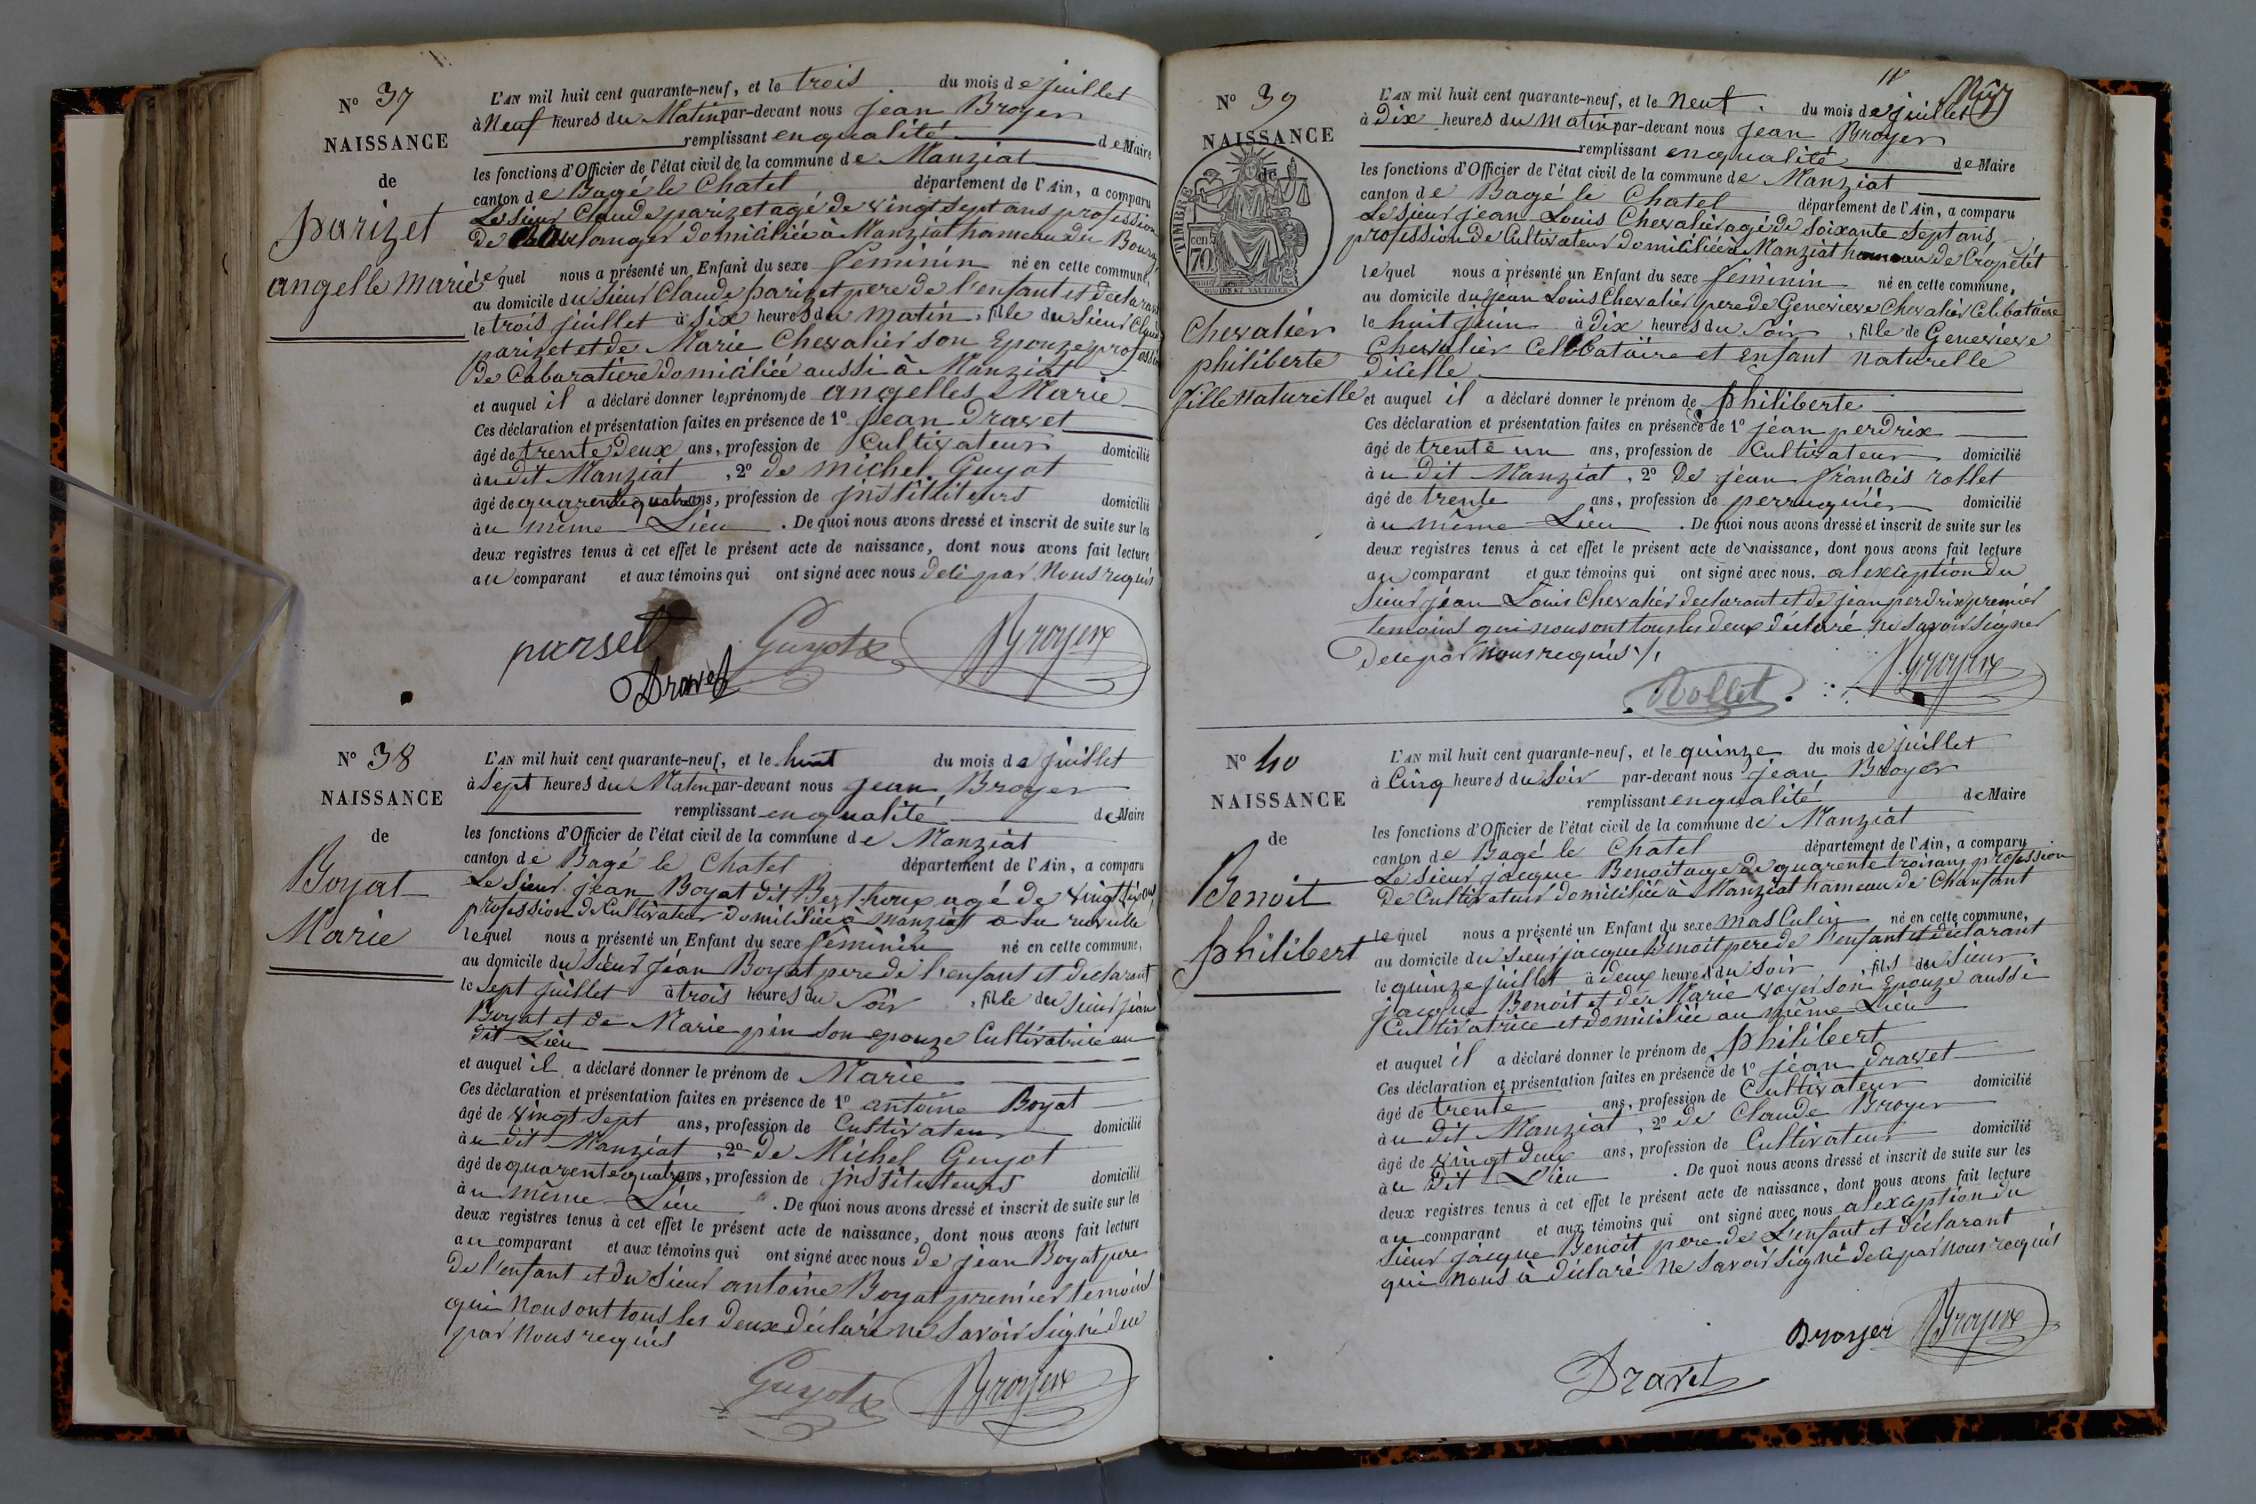 N° 37
NAISSANCE
de
parizet
angelle Marie
L'AN mil huit cent quarante-neuf, et le trois du mois de juillet
à Neuf heures du Matin par-devant nous jean Broyer
remplissant en qualité de Maire
les fonctions d'Officier de l'état civil de la commune de Manziat
canton de Bagé le Chatel département de l'Ain, a comparu
Le sieur Claude parizet agé de vingt sept ans profession
de Boulanger domiciliée à Manziat hameau du Bourg
lequel nous a présenté un Enfant du sexe feminin né en cette commune,
au domicile du sieur Claude parizet pere de l'enfant et declarant
le trois juillet à six heures du matin, fille du sieur Claude
parizet et de Marie Chevalier son Epouze profession
de Cabaratiere domiciliée aussi à Manziat
et auquel il a déclaré donner les prénoms de angelles Marie
Ces déclaration et présentation faites en présence de 1° jean Dravet
âgé de trente Deux ans, profession de Cultivateur domicilié
au dit Manziat, 2° de michel Guyot
âgé de quarente quatre ans, profession de jnstituteurs domicilié
au même Lieu. De quoi nous avons dressé et inscrit de suite sur les
deux registres tenus à cet effet le présent acte de naissance, dont nous avons fait lecture
au comparant et aux témoins qui ont signé avec nous de ce par Nous requis
parset
Dravet
Guyot
Broyer
N° 38
NAISSANCE
de
Boyat
Marie
L'AN mil huit cent quarante-neuf, et le huit du mois de juillet
à sept heures du Matin par-devant nous jean Broyer
remplissant en qualité de Maire
les fonctions d'Officier de l'état civil de la commune de Manziat
canton de Bagé le Chatel département de l'Ain, a comparu
Le sieur jean Boyat dit Berthoux agé de vingt six ans
profession de Cultivateur domiciliée à manziat
lequel nous a présenté un Enfant du sexe féminin né en cette commune,
au domicile du sieur jean Boyat pere de l'enfant et declarant
le sept juillet à trois heures du Soir, fille du sieur jean
Boyat et de Marie pin son epouze Cultivatrice au
dit Lieu
et auquel il a déclaré donner le prénom de Marie
Ces déclaration et présentation faites en présence de 1° antoine Boyat
âgé de vingt sept ans, profession de Cultivateur domicilié
au dit Manziat, 2° de Michel Guyot
âgé de quarente quatre ans, profession de jnstituteurs domicilié
au même Lieu. De quoi nous avons dressé et inscrit de suite sur les
deux registres tenus à cet effet le présent acte de naissance, dont nous avons fait lecture
au comparant et aux témoins qui ont signé avec nous de jean Boyat pere
de l'enfant et du sieur antoine Boyat premier temoins
qui Nous ont tous les deux déclaré ne savoir signé de ce
par Nous requis
Guyot
Broyer
N° 39
NAISSANCE
de
TIMBRE
cen. 70
Chevalier
philiberte
fille Naturelle
L'AN mil huit cent quarante-neuf, et le Neuf du mois de juillet
à Dix heures du matin par-devant nous jean Broyer
remplissant en qualité de Maire
les fonctions d'Officier de l'état civil de la commune de Manziat
canton de Bagé le Chatel département de l'Ain, a comparu
Le sieur jean Louis Chevalier agé de soixante sept ans
profession de Cultivateur domiciliée à Manziat hameau de Cropetet
lequel nous a présenté un Enfant du sexe féminin né en cette commune,
au domicile du jean Louis Chevalier pere de Genevieve Chevalier Celibataire
le huit juin à dix heures du Soir, fille de Genevieve
Chevalier Celibataire et Enfant naturelle
dicelle
et auquel il a déclaré donner le prénom de philiberte
Ces déclaration et présentation faites en présence de 1° jean perdrix
âgé de trente un ans, profession de Cultivateur domicilié
au dit Manziat, 2° De jean francois rollet
âgé de trente ans, profession de perruquier domicilié
au même Lieu. De quoi nous avons dressé et inscrit de suite sur les
deux registres tenus à cet effet le présent acte de naissance, dont nous avons fait lecture
au comparant et aux témoins qui ont signé avec nous. a lexception du
sieur jean Louis Chevalier declarant et de jean perdrix premier
temoins qui nous ont tous les deux déclaré ne savoir signer
de ce par nous requis
Rollet
Broyer
N° 40
NAISSANCE
de
Benoit
philibert
L'AN mil huit cent quarante-neuf, et le quinze du mois de juillet
à Cinq heures du Soir par-devant nous jean Broyer
remplissant en qualité de Maire
les fonctions d'Officier de l'état civil de la commune de Manziat
canton de Bagé le Chatel département de l'Ain, a comparu
Le sieur jacque Benoit age de quarente trois ans profession
de Cultivateur domiciliée à Manziat hameau de Chanfant
lequel nous a présenté un Enfant du sexe masculin né en cette commune,
au domicile du sieur jacque Benoit pere de l'enfant et declarant
le quinze juillet à deux heures du soir, fils du sieur
jacque Benoit et de Marie voyer son Epouze aussi
Cultivatrice et domiciliée au même Lieu
et auquel il a déclaré donner le prénom de philibert
Ces déclaration et présentation faites en présence de 1° jean Dravet
âgé de trente ans, profession de Cultivateur domicilié
au dit Manziat, 2° de Claude Broyer
âgé de vingt deux ans, profession de Cultivateur domicilié
au dit Lieu. De quoi nous avons dressé et inscrit de suite sur les
deux registres tenus à cet effet le présent acte de naissance, dont nous avons fait lecture
au comparant et aux témoins qui ont signé avec nous a lexception du
sieur jacque Benoit pere de L'enfant et déclarant
qui nous à déclaré Ne savoir signé de ce par Nous requis
Broyer
Broyer
Dravet